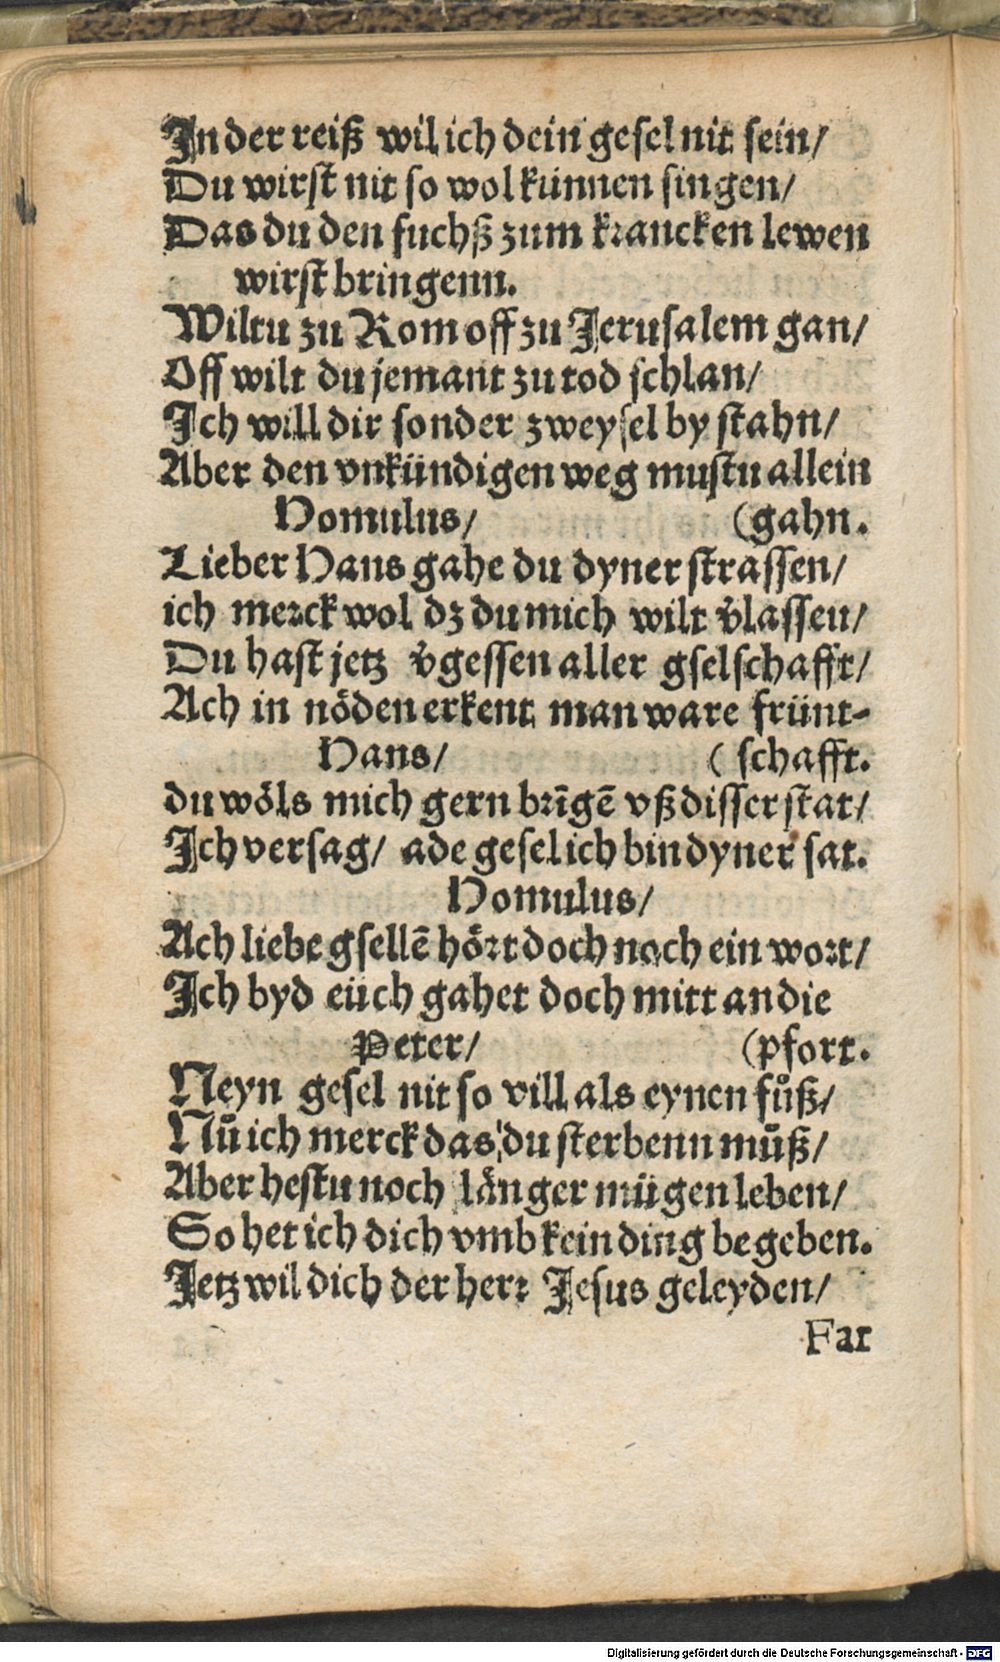 In der reiß wil ich dein gesel nit sein/
Du wirst nit so wol künnen singen/
Das du den fuchß zum krancken lewen
wirst bringenn.
Wiltu zu Rom off zu Jerusalem gan/
Off wilt du jemant zu tod schlan/
Ich will dir sonder zweyfel by stahn/
Aber den vnkündigen weg mustu allein
Homulus/ (gahn.
Lieber Hans gahe du dyner strassen/
ich merck wol dz du mich wilt v̄lassen/
Du hast jetz v̄gessen aller gselschafft/
Ach in nöden erkent man ware frünt-
Hans/ ( schafft.
du wöls mich gern brīgē vß disser stat/
Ich versag/ ade gesel ich bin dyner sat.
Homulus/
Ach liebe gsellē hört doch noch ein wort/
Ich byd eüch gahet doch mitt an die
Peter/ (pfort.
Neyn gesel nit so vill als eynen fůß/
Nů ich merck das du sterbenn můß/
Aber hestu noch länger mügen leben/
So het ich dich vmb kein ding begeben.
Jetz wil dich der herr Jesus geleyden/
Far
Digitalisierung gefördert durch die Deutsche Forschungsgemeinschaft - DFG